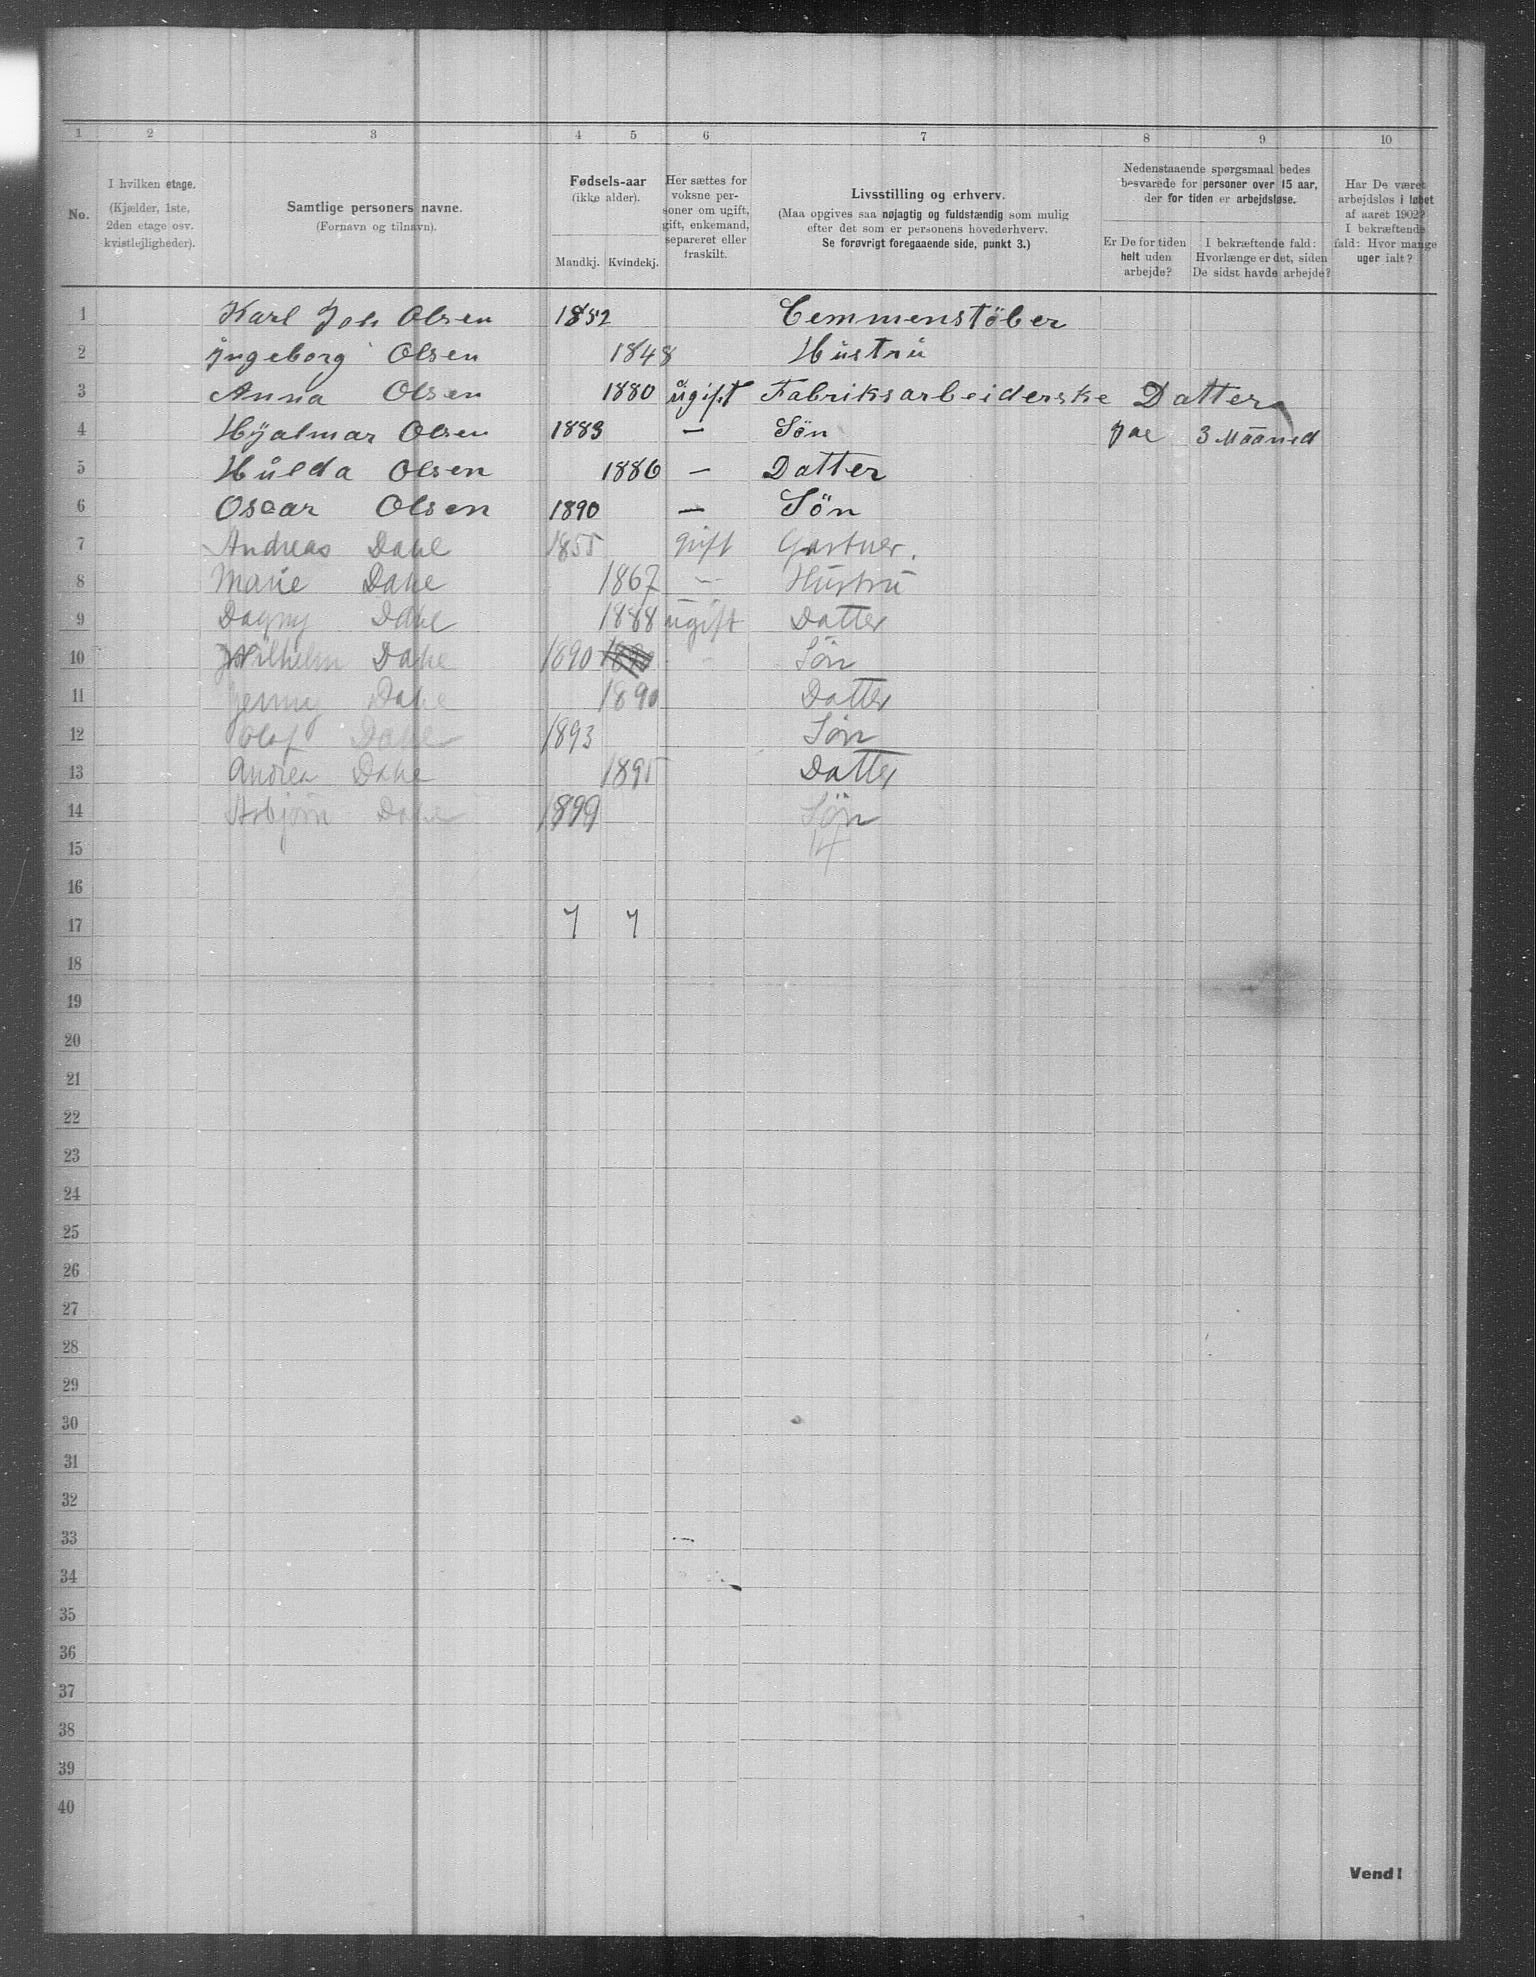 1 2 3 4 5 6 7 8 9 10
No.
I hvilken etage.
(Kjælder, 1ste, 2den etage osv. kvistlejligheder).
Samtlige personers navne.
(Fornavn og tilnavn).
Fødsels-aar
(ikke alder).
Mandkj. Kvindekj.
Her sættes for voksne personer om ugift, gift, enkemand, separeret eller fraskilt.
Livsstilling og erhverv.
(Maa opgives saa nøjagtig og fuldstændig som mulig
efter det som er personens hovederhverv.
Se forøvrigt foregaaende side, punkt 3.)
Nedenstaaende spørgsmaal bedes
besvarede for personer over 15 aar,
der for tiden er arbejdsløse.
Er De for tiden helt uden arbejde?
I bekræftende fald: Hvorlænge er det, siden De sidst havde arbejde?
Har De været arbejdsløs i løbet af aaret 1902? I bekræftende fald: Hvor mange uger ialt?
1 Karl Joh Olsen 1852 Cemmenstöber
2 Ingeborg Olsen 1848 Hustru
3 Anna Olsen 1880 ugift Fabriksarbeiderske Datter
4 Hjalmar Olsen 1883 — Sön jae 3 Måaned
5 Hulda Olsen 1886 — Datter
6 Oscar Olsen 1890 — Sön
7 Andreas Dahl 1855 gift Gartner.
8 Marie Dahl 1867 — Hustru
9 Dagny Dahl 1888 ugift Datter
10 Wilhelm Dahl 1890 Sön
11 Jenny Dahl 1890 Datter
12 Olaf Dahl 1893 Sön
13 Andrea Dahl 1895 Datter
14 Asbjörn Dahl 1899 Sön
15 14
16
17 7 7
18
19
20
21
22
23
24
25
26
27
28
29
30
31
32
33
34
35
36
37
38
39
40
Vend!